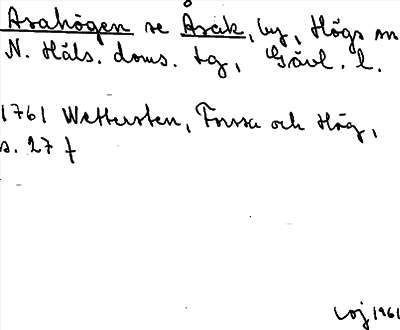 Asahögen se Åsak, by, Högs sn
N. Häls. doms. tg, Gävl. l.
1761 Wettersten, Forssa och Hög,
s. 27 f
Loj 1961